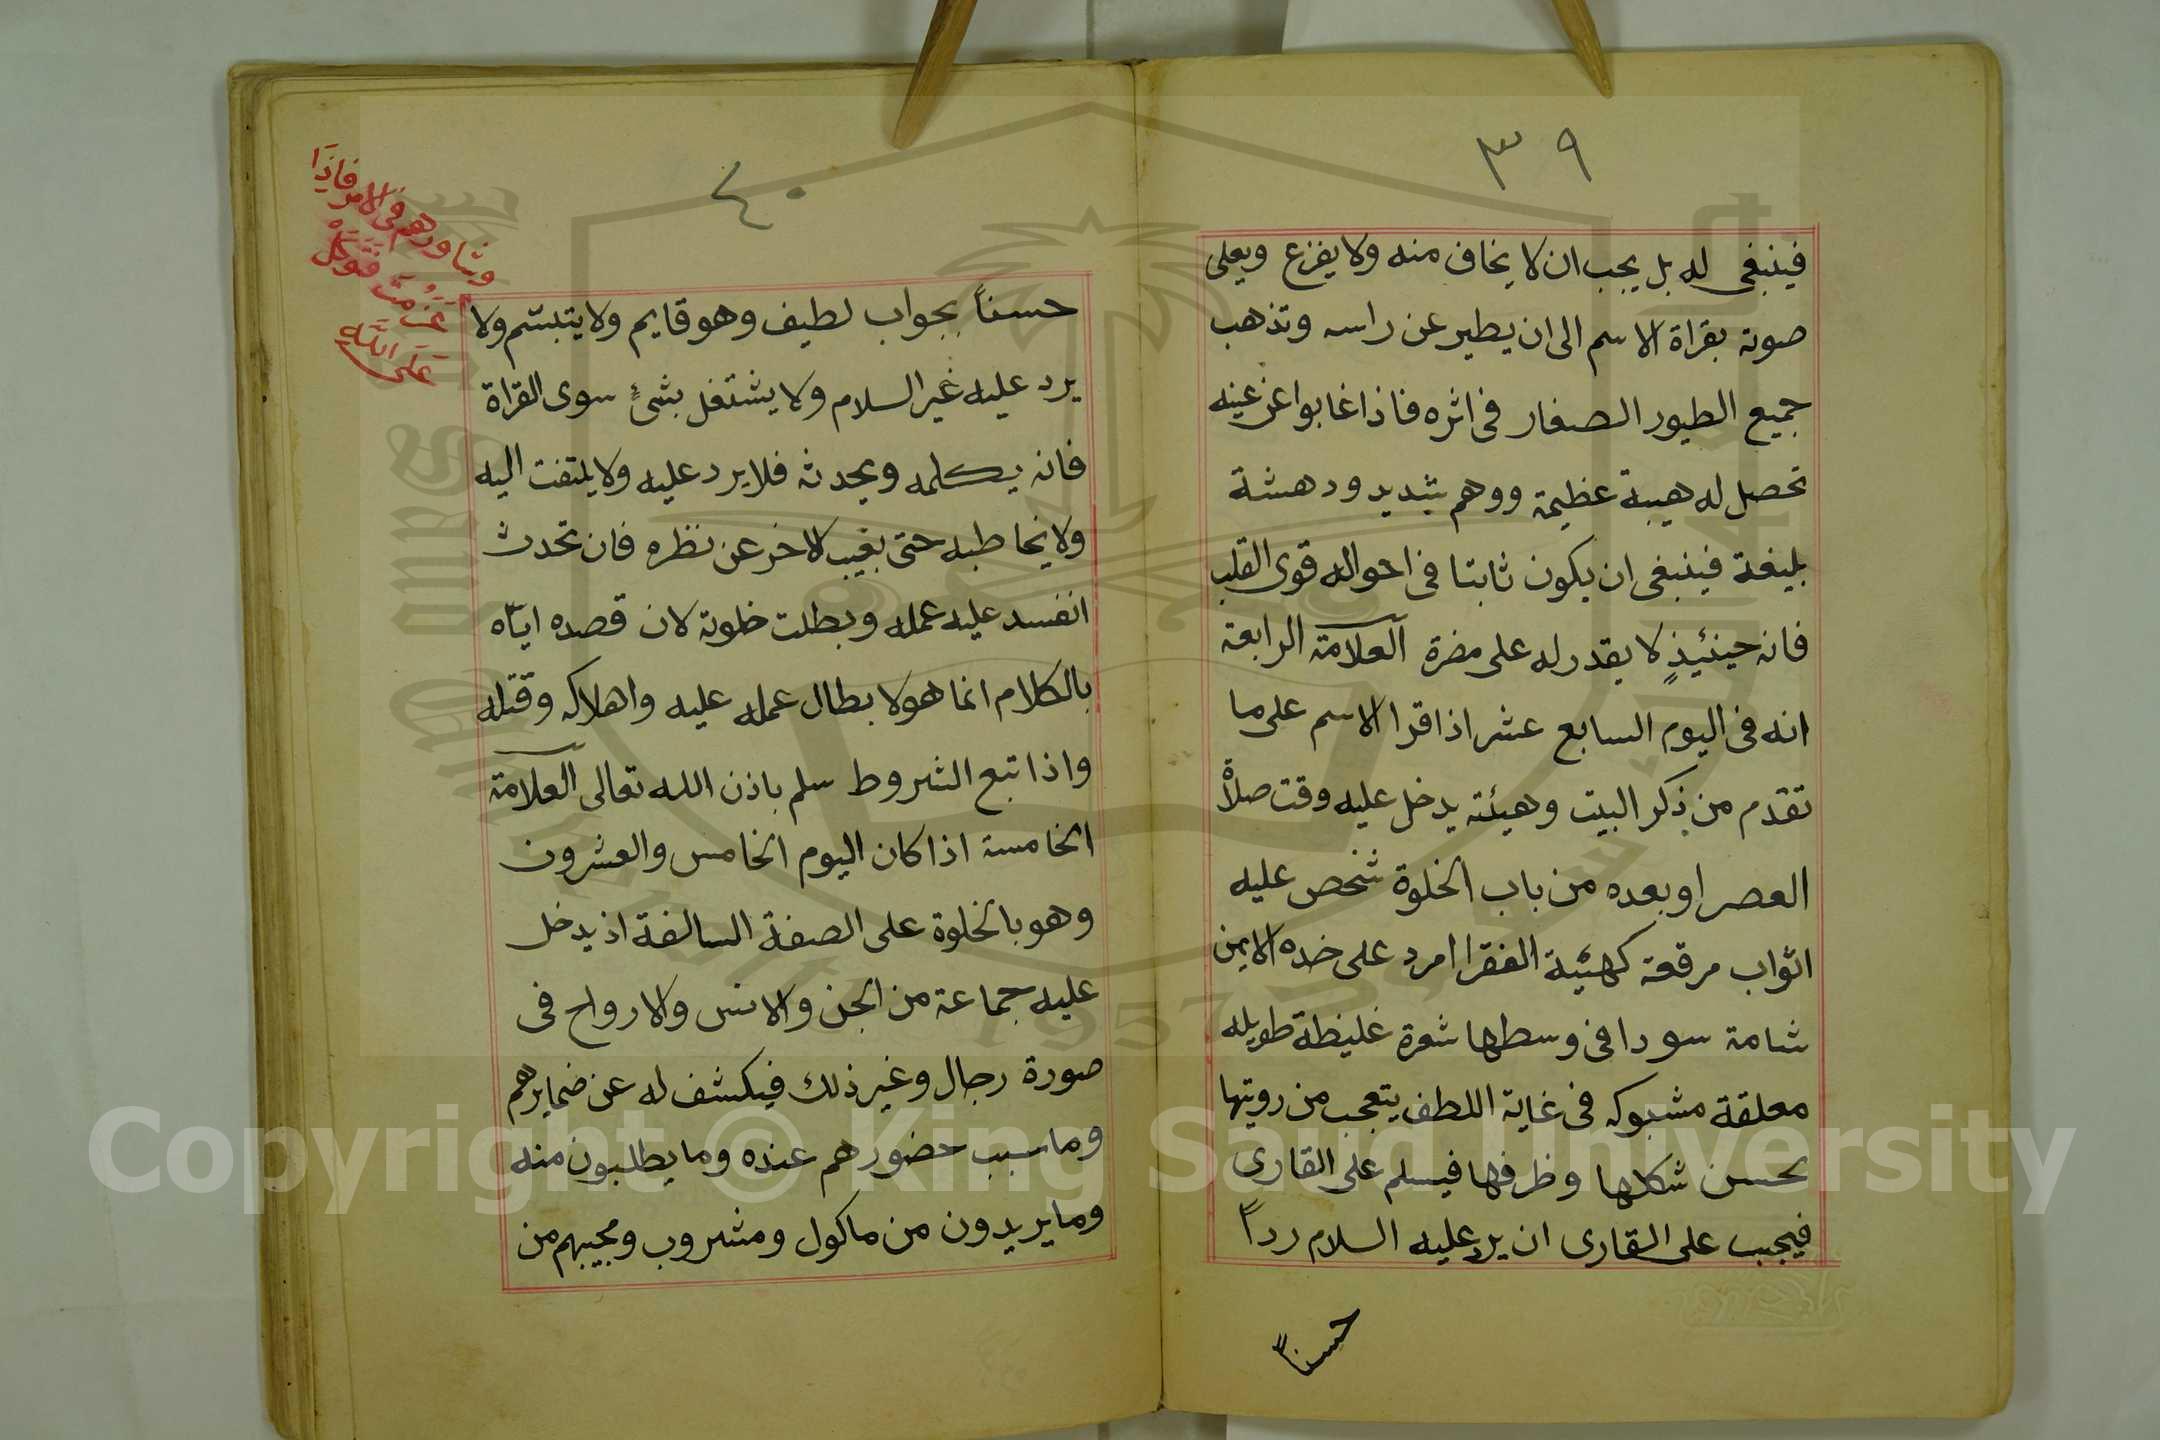 ٣٩
فينبغى له بل يجب ان لا يخاف منه ولا يفزع ويعلى
صوته بقراة الاسم الى ان يطير عن راسه وتذهب
جميع الطيور الصغار فى اثره فاذا غابوا عن عينه
تحصل له هيبة عظيمة ووهم شديد ودهشة
بليغة فينبغى ان يكون ثابتا فى احواله قوى القلب
فانه حينئيذٍ لا يقدر له على مضرة العلامة الرابعة
انه فى اليوم السابع عشر اذا قرا الاسم على ما
تقدم من ذكر البيت وهيئته يدخل عليه وقت صلاة
العصر او بعده من باب الخلوة شخص عليه
اثواب مرقعة كهئية الفقرا امرد على خده الايمن
شامة سودا فى وسطها شعرة غليظة طويله
معلقة مشبوكه فى غاية اللطف يتعجب من رويتها
بحسن شكلها وظرفها فيسلم على القارى
فيجب على القارى ان يرد عليه السلام رداً
حسناً
٤٠
حسناً بجواب لطيف وهو قايم ولا يتبسّم ولا
يرد عليه غير السلام ولا يشتغل بشئٍ سوى القراة
فانه يكلمه ويحدثه فلا يرد عليه ولا يلتفت اليه
ولا يخاطبه حتى يغيب لاخر عن نظره فان تحدث
انفسد عليه عمله وبطلت خلوته لان قصده ايّاه
بالكلام انما هو لابطال عمله عليه واهلاكه وقتله
واذا تبع الشروط سلم باذن الله تعالى العلامة
الخامسة اذا كان اليوم الخامس والعشرون
وهو بالخلوة على الصفة السالفة اذ يدخل
عليه جماعة من الجن والانس والارواح فى
صورة رجال وغير ذلك فيكشف له عن ضمايرهم
وما سبب حضورهم عنده وما يطلبون منه
وما يريدون من ماكول ومشروب ومجيبهم من
وشاورهم فى الامر فاذا
عزمت فتوكل
على الله
Copyright © King Saud University
1957